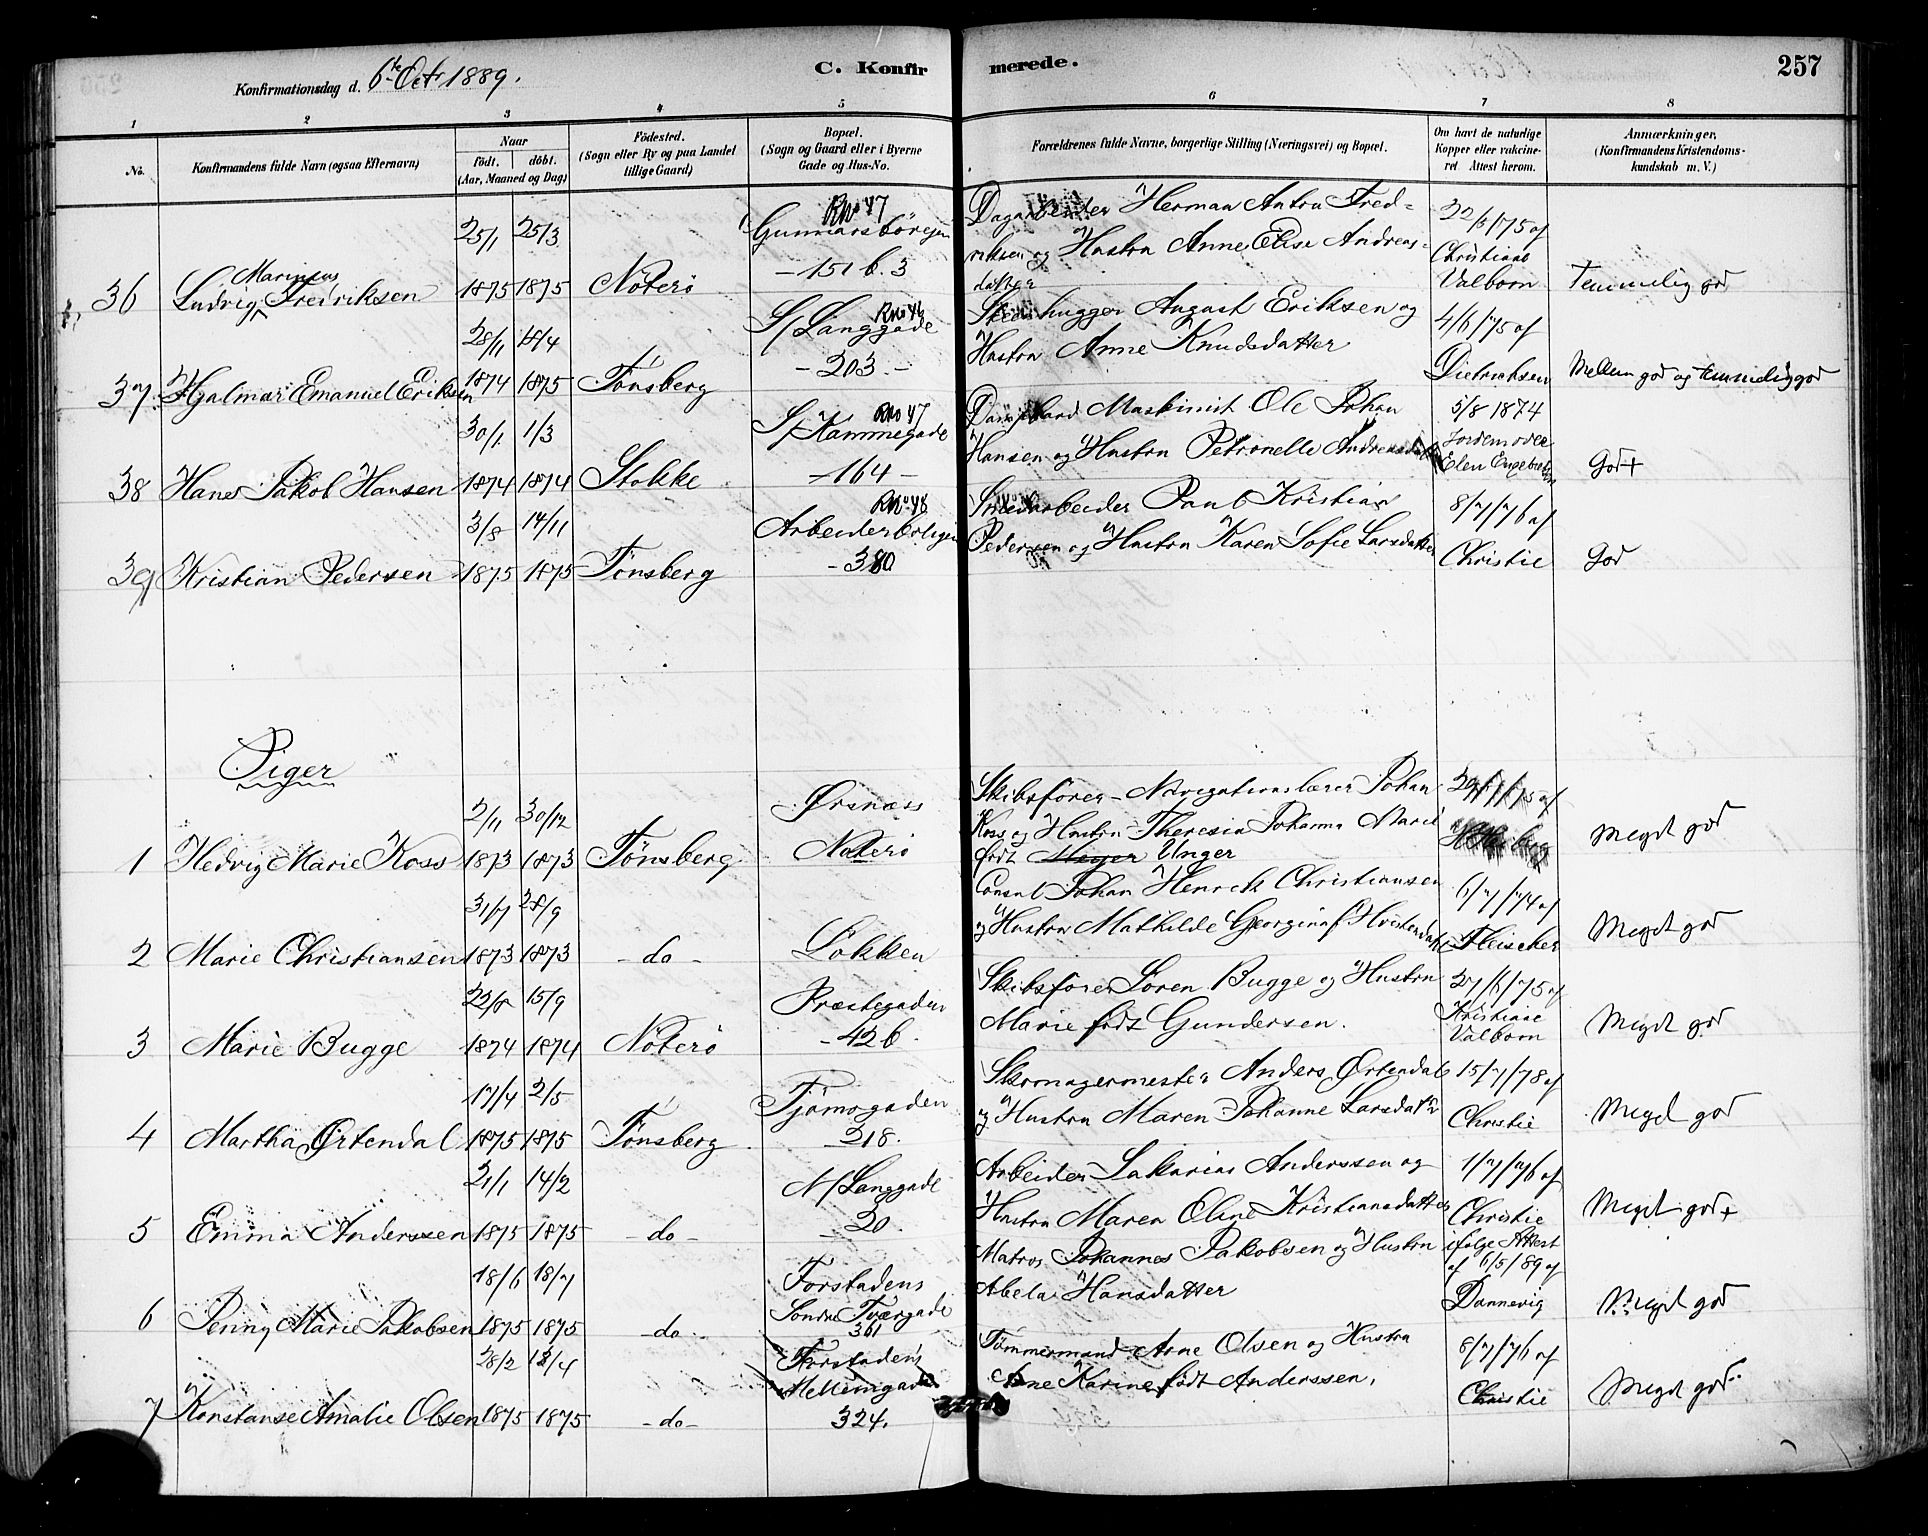 Konfirmationsdag d. 6te Octr 1889.
C. Konfirmerede.
257
1 2 3 4 5 6 7 8
No.
Konfirmandens fulde Navn (ogsaa Efternavn)
Naar
født. døbt.
(Aar, Maaned og Dag)
Fødested.
(Sogn eller By og paa Landet
tillige Gaard)
Bopæl.
(Sogn og Gaard eller i Byerne
Gade og Hus-No.
Forældrenes fulde Navne, borgerlige Stilling (Næringsvei) og Bopæl.
Om havt de naturlige
Kopper eller vakcine-
ret Attest herom.
Anmærkninger,
(Konfirmandens Kristendoms-
kundskab m. V.)
Rno 47
25/1 25/3 Gunnarsbøregen Dagarbeider Herman Anton Fred= 22/6/75 af
Marinius
-151 b. 3 riksen og Hustru Anne Elise Andreas= Christiane
36 Ludvig Fredriksen 1875 1875 Nøterø datter Valborn Temmelig god
Rno 46
28/11 18/4 S/Langgade hugger August Eriksen og 4/6/75 af
-203.- Hustru Anne Knudsdatter
37. Hjalmar Emanuel Eriksen 1874 1875 Tønsberg Dietrichsen Mellem god og temmelig god
Rno 47
30/1 1/3 S/Kammegade Maskinist Ole Johan 5/8 1874
38 Hans Jakob Hansen 1874 1874 Stokke -164- Hansen og Hustru Petronelle Andreasdatter Jordemoder Elen God+
Rno 48
3/8 14/11 Arbeiderboligen Smedarbeider Paul Kristian 8/7/76 af
39 Kristian Pedersen 1875 1875 Tønsberg -380 Pedersen og Hustru Karen Sofie Larsdatter Christie God
Piger
2/11 30/12 Ørsnæss Skibsfører - Navigationslærer Johan 29/1/75 af
1 Hedvig Marie Koss 1873 1873 Tønsberg Nøterø Koss og Hustru Theresia Johanna Marie Heiberg Meget god
født Meyer Unger
31/7 28/9 Consul Johan Henrik Christiansen 6/7/74 af
2 Marie Christiansen 1873 1873 -do- Løkken og Hustru Mathilde Georgina f. Fleischer Meget god
22/8 15/9 Præstegaden Skibsfører Søren Bugge og Hustru 27/6/75 af
3 Marie Bugge 1874 1874 Nøterø -42 b. Marie født Gundersen. Kristiane Valborn Meget god
17/4 2/5 Tjømogaden Skomagermester Anders Ørtendal 15/7/78 af
4 Martha Ørtendal 1875 1875 Tønsberg -218. og Hustru Maren Johanne Larsdatter Christie Meget god
21/1 14/2 N/Langgade Arbeider Sakarias Anderssen og 1/7/76 af
5 Emma Anderssen 1875 1875 -do- 20. Hustru Maren Oline Kristiansdatter Christie Meget god+
18/6 18/7 Forstadens Matros Johannes Jakobsen og Hustru ifølge Attest
Søndre Tværgade Abela Hansdatter af 6/5/89 af
6 Penny Marie Jakobsen 1875 1875 -do- 361 Dannevig Meget god
28/2 18/4 Forstadens Tømmermand Arne Olsen og Hustru 8/7/76 af
Mellemgade Anne Karine født Anderssen. Christie Meget god
7 Konstanse Amalie Olsen 1875 1875 -do- 324.